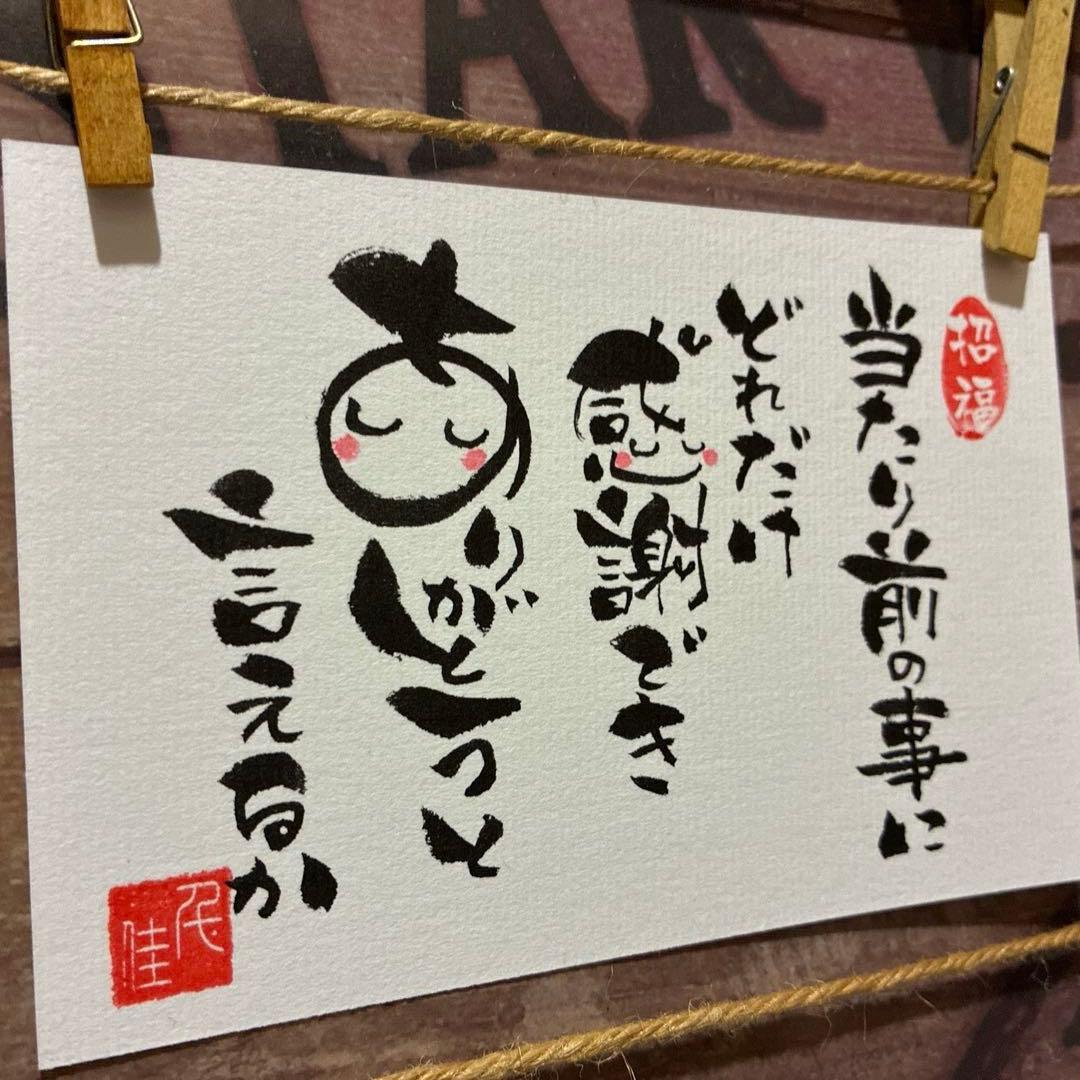 招福
当たり前の事に
どれだけ
感謝でき
ありがとうと
言えるか
佳